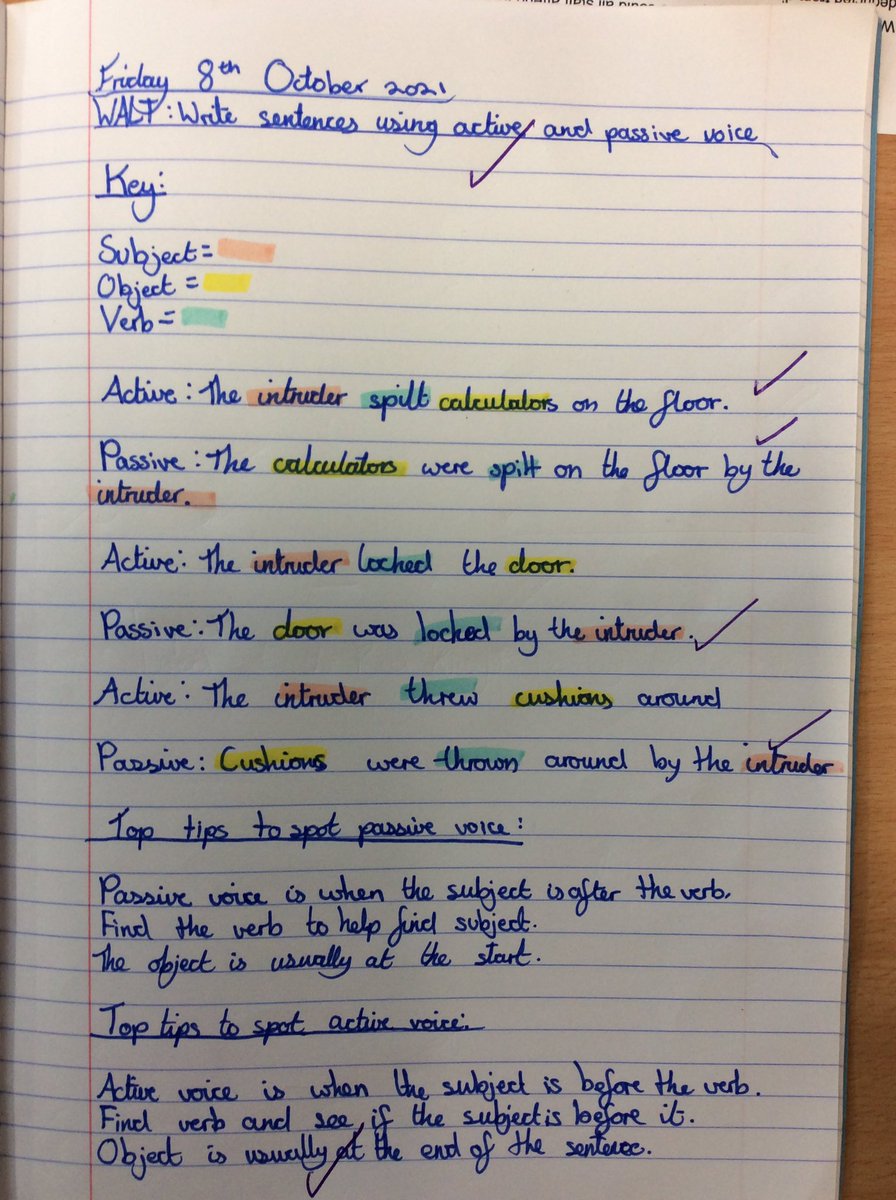 Friday 8th October 2021
WALT: Write sentences using active and passive voice
Key:
Subject =
Object =
Verb =
Active: The intruder spilt calculators on the floor.
Passive: The calculators were spilt on the floor by the
intruder.
Active: The intruder locked the door.
Passive: The door was locked by the intruder.
Active: The intruder threw cushions around
Passive: Cushions were thrown around by the intruder
Top tips to spot passive voice:
Passive voice is when the subject is after the verb.
Find the verb to help find subject.
The object is usually at the start.
Top tips to spot active voice:
Active voice is when the subject is before the verb.
Find verb and see if the subject is before it.
Object is usually at the end of the sentence.